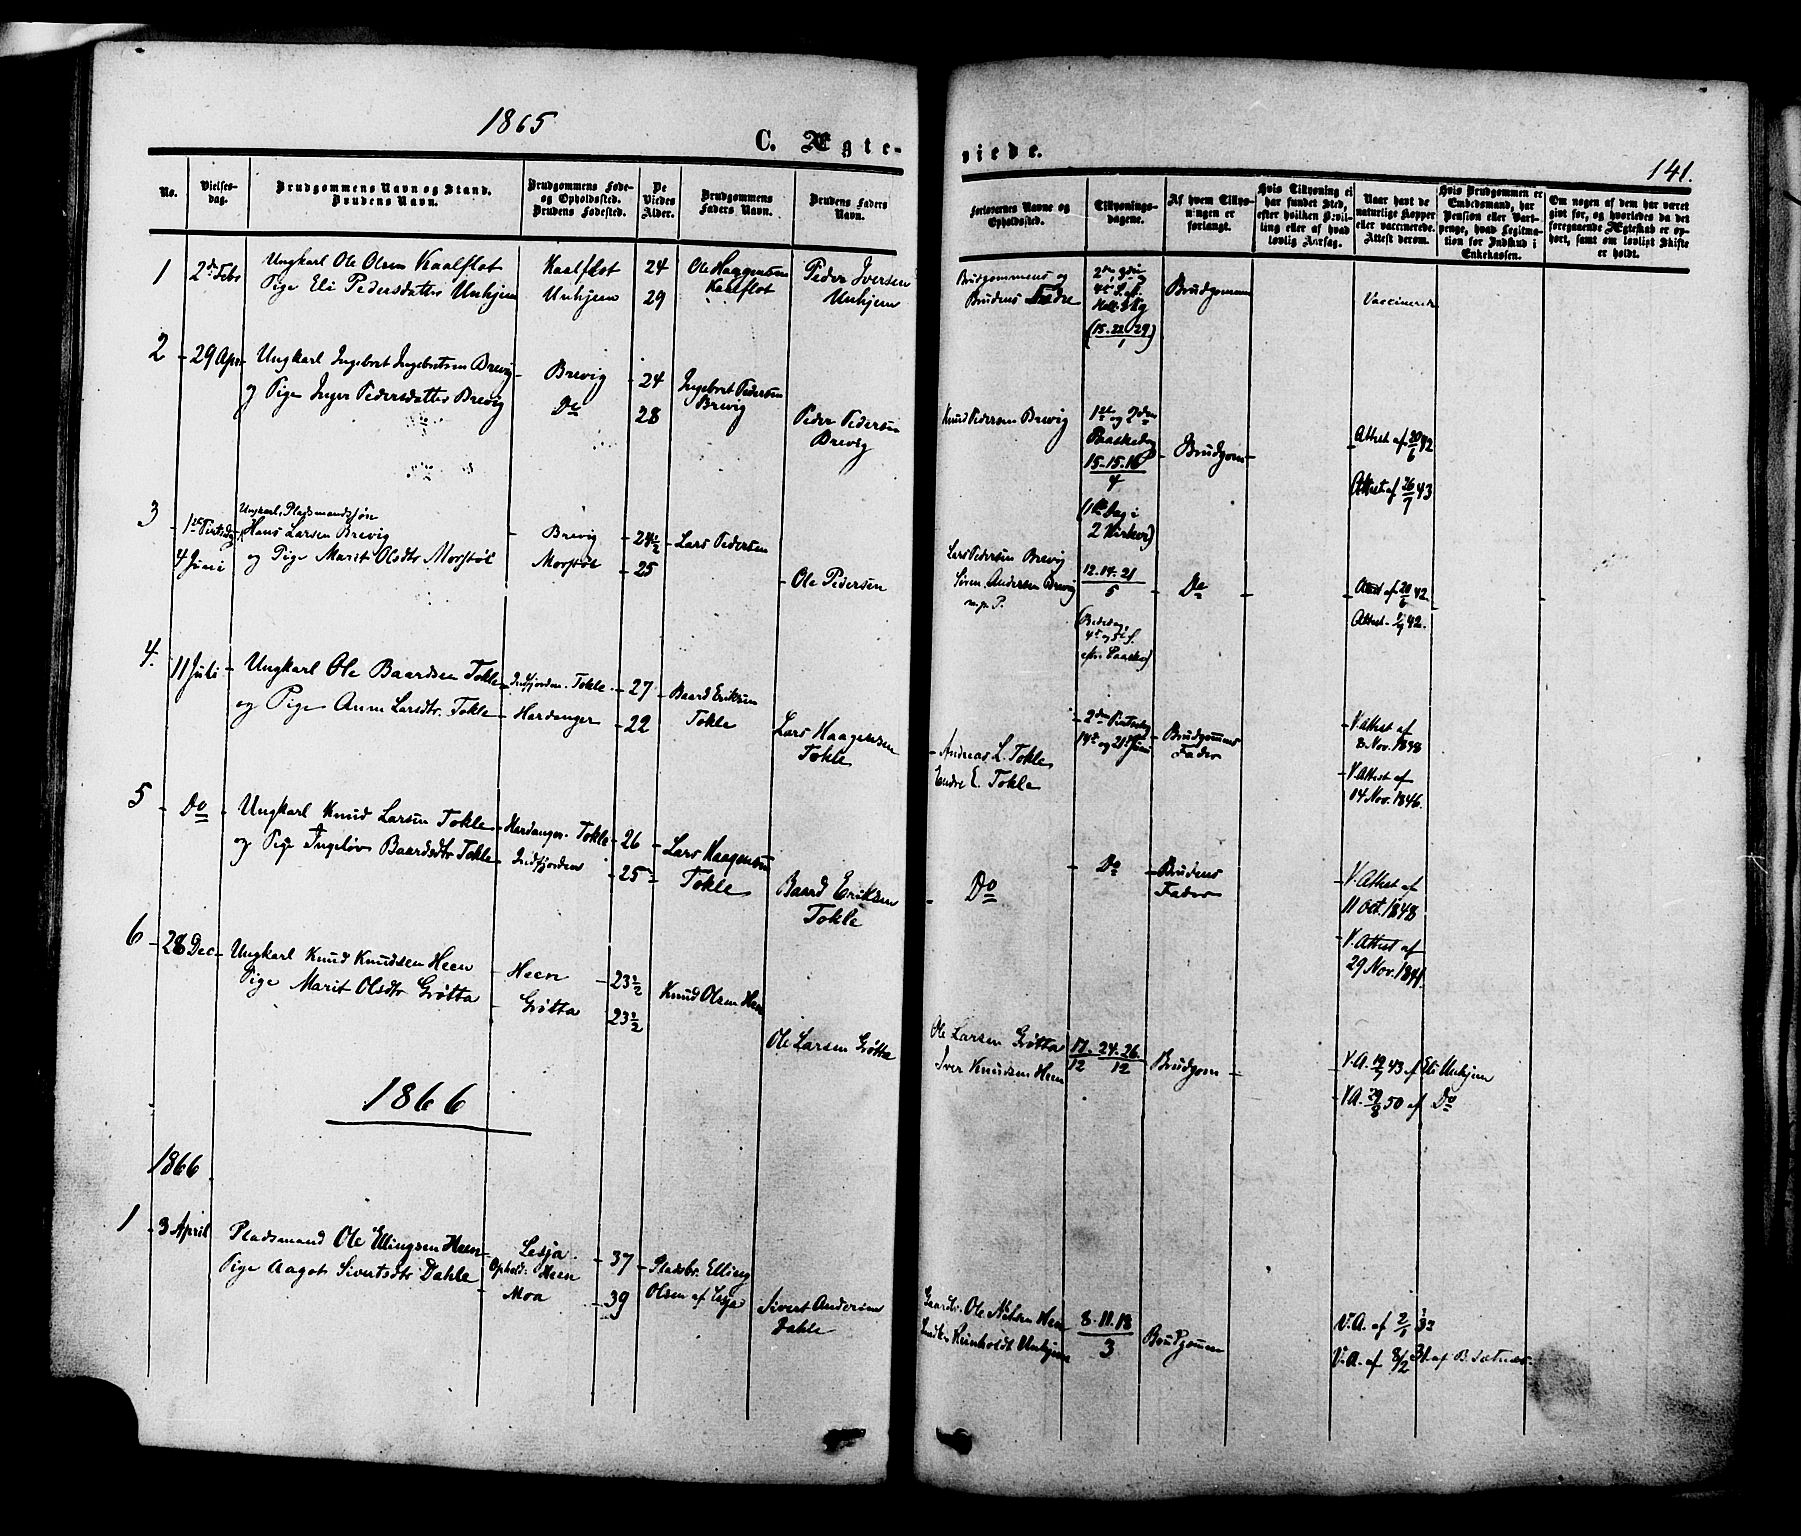 1865
C. Ægte-
viede.
141.
No.
Vielses-
dag.
Brudgommens Navn og Stand.
Brudens Navn.
Brudgommens Føde-
og Opholdssted.
Brudens Fødested.
De
Viedes
Alder.
Brudgommens
Faders Navn.
Brudens Faders
Navn.
Forlovernes Navne og
Opholdssted.
Tillysnings-
dagene.
Af hvem Tillys-
ningen er
forlangt.
Hvis Tillysning ei
har fundet Sted,
efter hvilken Bevil-
ling eller af hvad
lovlig Aarsag.
Naar havt de
naturlige Kopper
eller vaccinerede.
Attest derom.
Hvis Brudgommen er
Embedsmand, har
Pension eller Vart-
penge, hvad Legitima-
tion for Indskud i
Enkekassen.
Om nogen af dem har været
gift før, og hvorledes da det
foregaaende Ægteskab er op-
hørt, samt om lovligt Skifte
er holdt.
1
2den Febr
Ungkarl Ole Olsen Kaalflot
Pige Eli Pedersdatter Unhjem
Kaalflot
Unhjem
24
29
Ole Haagensen
Kaalflot
Peder Iversen
Unhjem
Brudgommens og
Brudens Fædre
(15. 22. 29)
1
Brudgommen
Vaccinerede
2
29 Apr
Ungkarl Ingebret Ingebretsen Brevig
og Pige Inger Pedersdatter Brevig
Brevig
Do
24
28
Ingebret Pedersen
Brevig
Peder Pedersen
Brevig
Knud Pedersen Brevig
1ste og 2den
Paaskedag
15-15-16
4
(1ste Dag i
2 Kirker)
Brudgom
Attest af 20/6 42
Attest af 26/7 43
3
1ste Pintsedag
4 Juni
Ungkarl, Pladsmandssøn
Hans Larsen Brevig
og Pige Marit Olsdtr Morstøl
Brevig
Morstøl
24½
25
Lars Pedersen
Ole Pedersen
Lars Pedersen Brevig
Søren Andersen Brevig
m. p. P.
12. 14. 21
5
(Bededag,
4de og 5te S.
eftr. Paaske)
Do
Attest af 20/6 42
4.
11 Juli
Ungkarl Ole Baardsen Tokle
og Pige Anna Larsdtr. Tokle
Indfjorden. Tokle
Hardanger
27
22
Baard Eriksen
Tokle
Lars Haagensen
Tokle
Andreas L. Tokle
Endre E. Tokle
2den Pintsedag
14de og 21de Juni
Brudgommens
Fader
V. Attest af
V. Attest af
14 Nov. 1846.
5
Do
Ungkarl Knud Larsen Tokle
og Pige Ingeløv Baardsdtr Tokle
Hardanger. Tokle
Indfjorden
26
25
Lars Haagensen
Tokle
Baard Eriksen
Tokle
Do
Do
Brudens
Fader
V. Attest af
11 Oct. 1848
V. Attest af
6
28 Dec
Ungkarl Knud Knudsen Heen
Pige Marit Olsdtr Grøtta
Heen
Grøtta
23½
23½
Knud Olsen Heen
Ole Larsen Grøtta
Ole Larsen Grøtta
Iver Knudsen Heen
17. 24. 26
12 12
Brudgom
V. A. 19/7 43 af Eli Unhjem
V. A. 29/8 50 af Do
1866
1866
1
3 April
Pladsmand Ole Ellingsen Heen
Pige Aagot Sivertsdtr Dahle
Lesja
Ophold: Heen
Moa
37
39
Pladsbr. Elling
Olsen af Lesja
Sivert Andersen
Dahle
Gaardbr. Ole Nilsen Heen
Reinholdt Unhjem
8. 11. 18
3
Brudgommen
V. A. af 2/1 32
V. A. af 8/2 31 af B. Sætnes